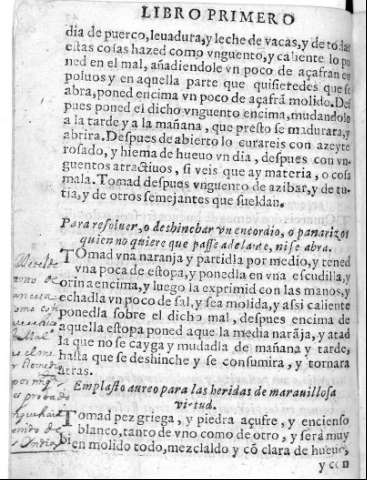 LIBRO PRIMERO
dia de puerco, leuadura, y leche de vacas, y de todas
estas cosas hazed como vnguento, y caliente lo po
ned en el mal, añadiendole vn poco de açafran en
poluos y en aquella parte que quisieredes que se
abra, poned encima vn poco de açafrã molido. Des
pues poned el dicho vnguento encima, mudandolo
a la tarde y a la mañana, que presto se madurara, y
abrira. Despues de abierto lo curareis con azeyte
rosado, y hiema de hueuo vn dia, despues con vn-
guentos atractiuos, si veis que ay materia, o cosa
mala. Tomad despues vnguento de azibar, y de tu-
tia, y de otros semejantes que sueldan.
Para resoluer, o deshinchar vn encordio, o panarizos
quien no quiere que passe adelante, ni se abra.
TOmad vna naranja y partidla por medio, y tened
vna poca de estopa, y ponedla en vna escudilla, y
orina encima, y luego la exprimid con las manos, y
echadla vn poco de sal, y sea molida, y assi caliente
ponedla sobre el dicho mal, despues encima de
aquella estopa poned aquella media narãja, y atad
la que no se cayga y mudadla de mañana y tarde,
hasta que se deshinche y se consumira, y tornara
atras.
Emplasto aureo para las heridas de marauillosa
virtud.
TOmad pez griega, y piedra açufre, y encienso
blanco, tanto de vno como de otro, y será muy
bien molido todo, mezclaldo y cõ clara de hueuo,
y con